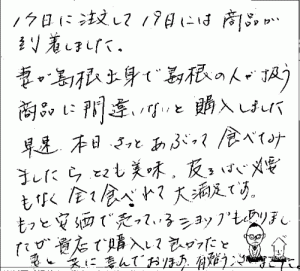 17日に注文して19日には商品が
到着しました。
妻が島根出身で島根の人が扱う
商品に間違いないと購入しました
早速 本日 さっとあぶって食べてみ
ましたら とても美味。皮をはぐ必要
もなく 全て食べれて大満足です。
もっと安価で売っているショップもありまし
たが貴店で購入して良かったと
妻と共に喜んでおります。有難うございました